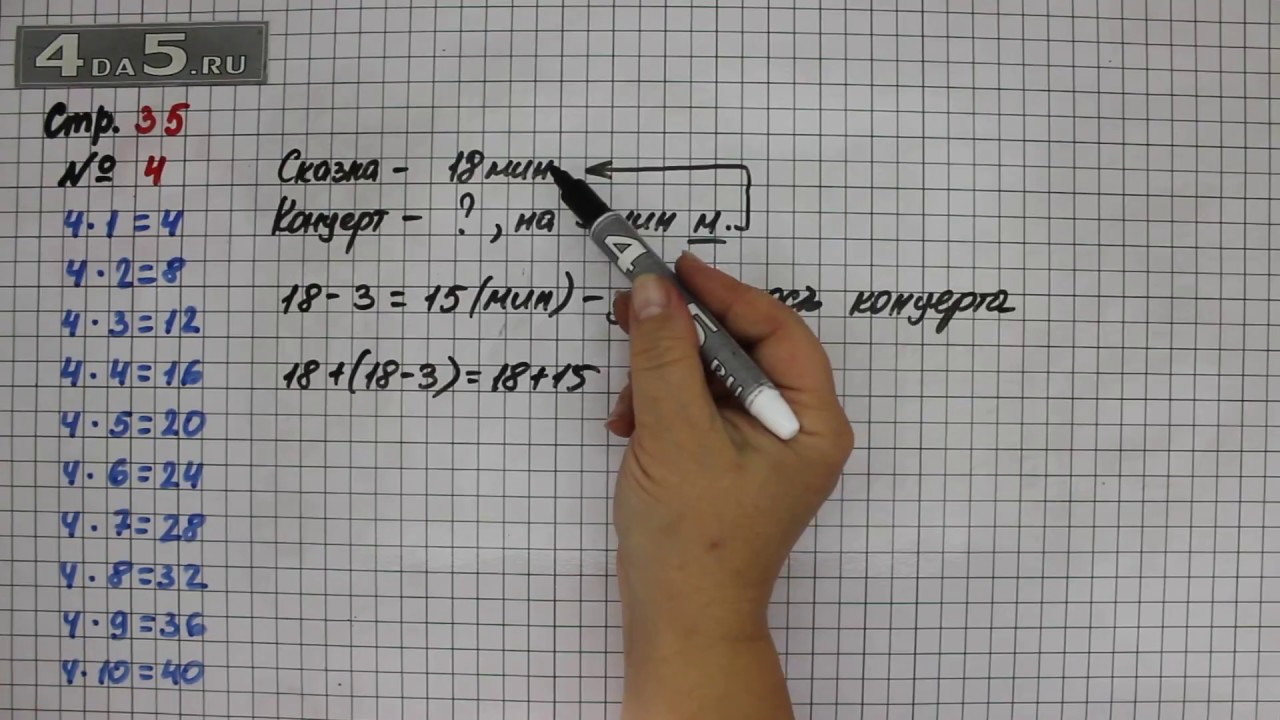 4DA5.RU
Стр. 35
№ 4
4·1=4
4·2=8
4·3=12
4·4=16
4·5=20
4·6=24
4·7=28
4·8=32
4·9=36
4·10=40
Сказка - 18 мин
Концерт - ?, на мин м.
18-3=15(мин)- концерта
18+(18-3)=18+15
4 5.RU